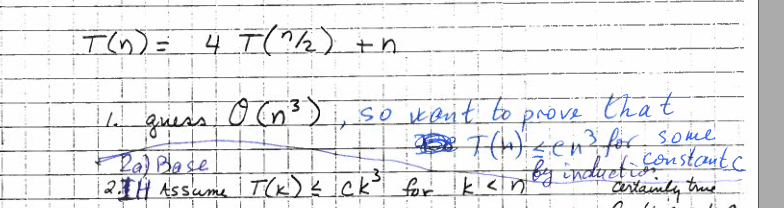 T(n) = 4 T(n/2) + n
1. guess O(n³), so want to prove that
T(n) ≤ cn³ for some
constant c
by induction
2a) Base
2. IH Assume T(k) ≤ ck³ for k < n
certainly true